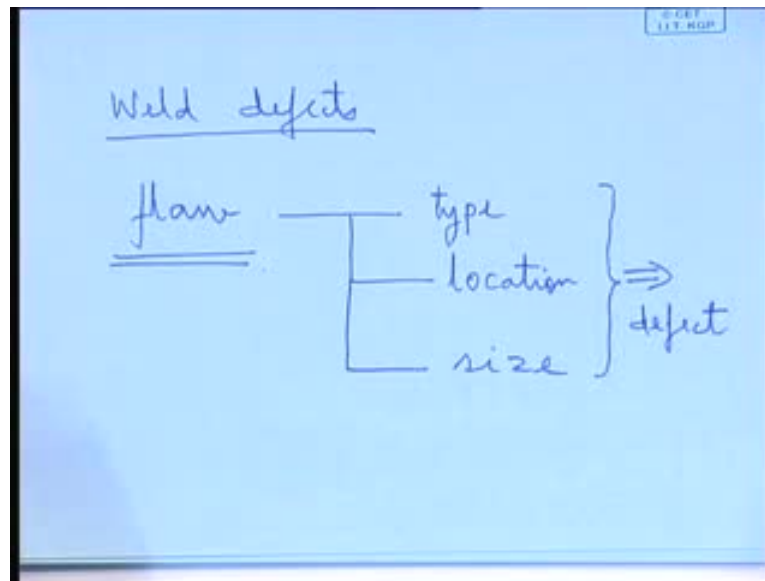 © CET
I.I.T. KGP
Weld defects
flaw
type
location
size
defect